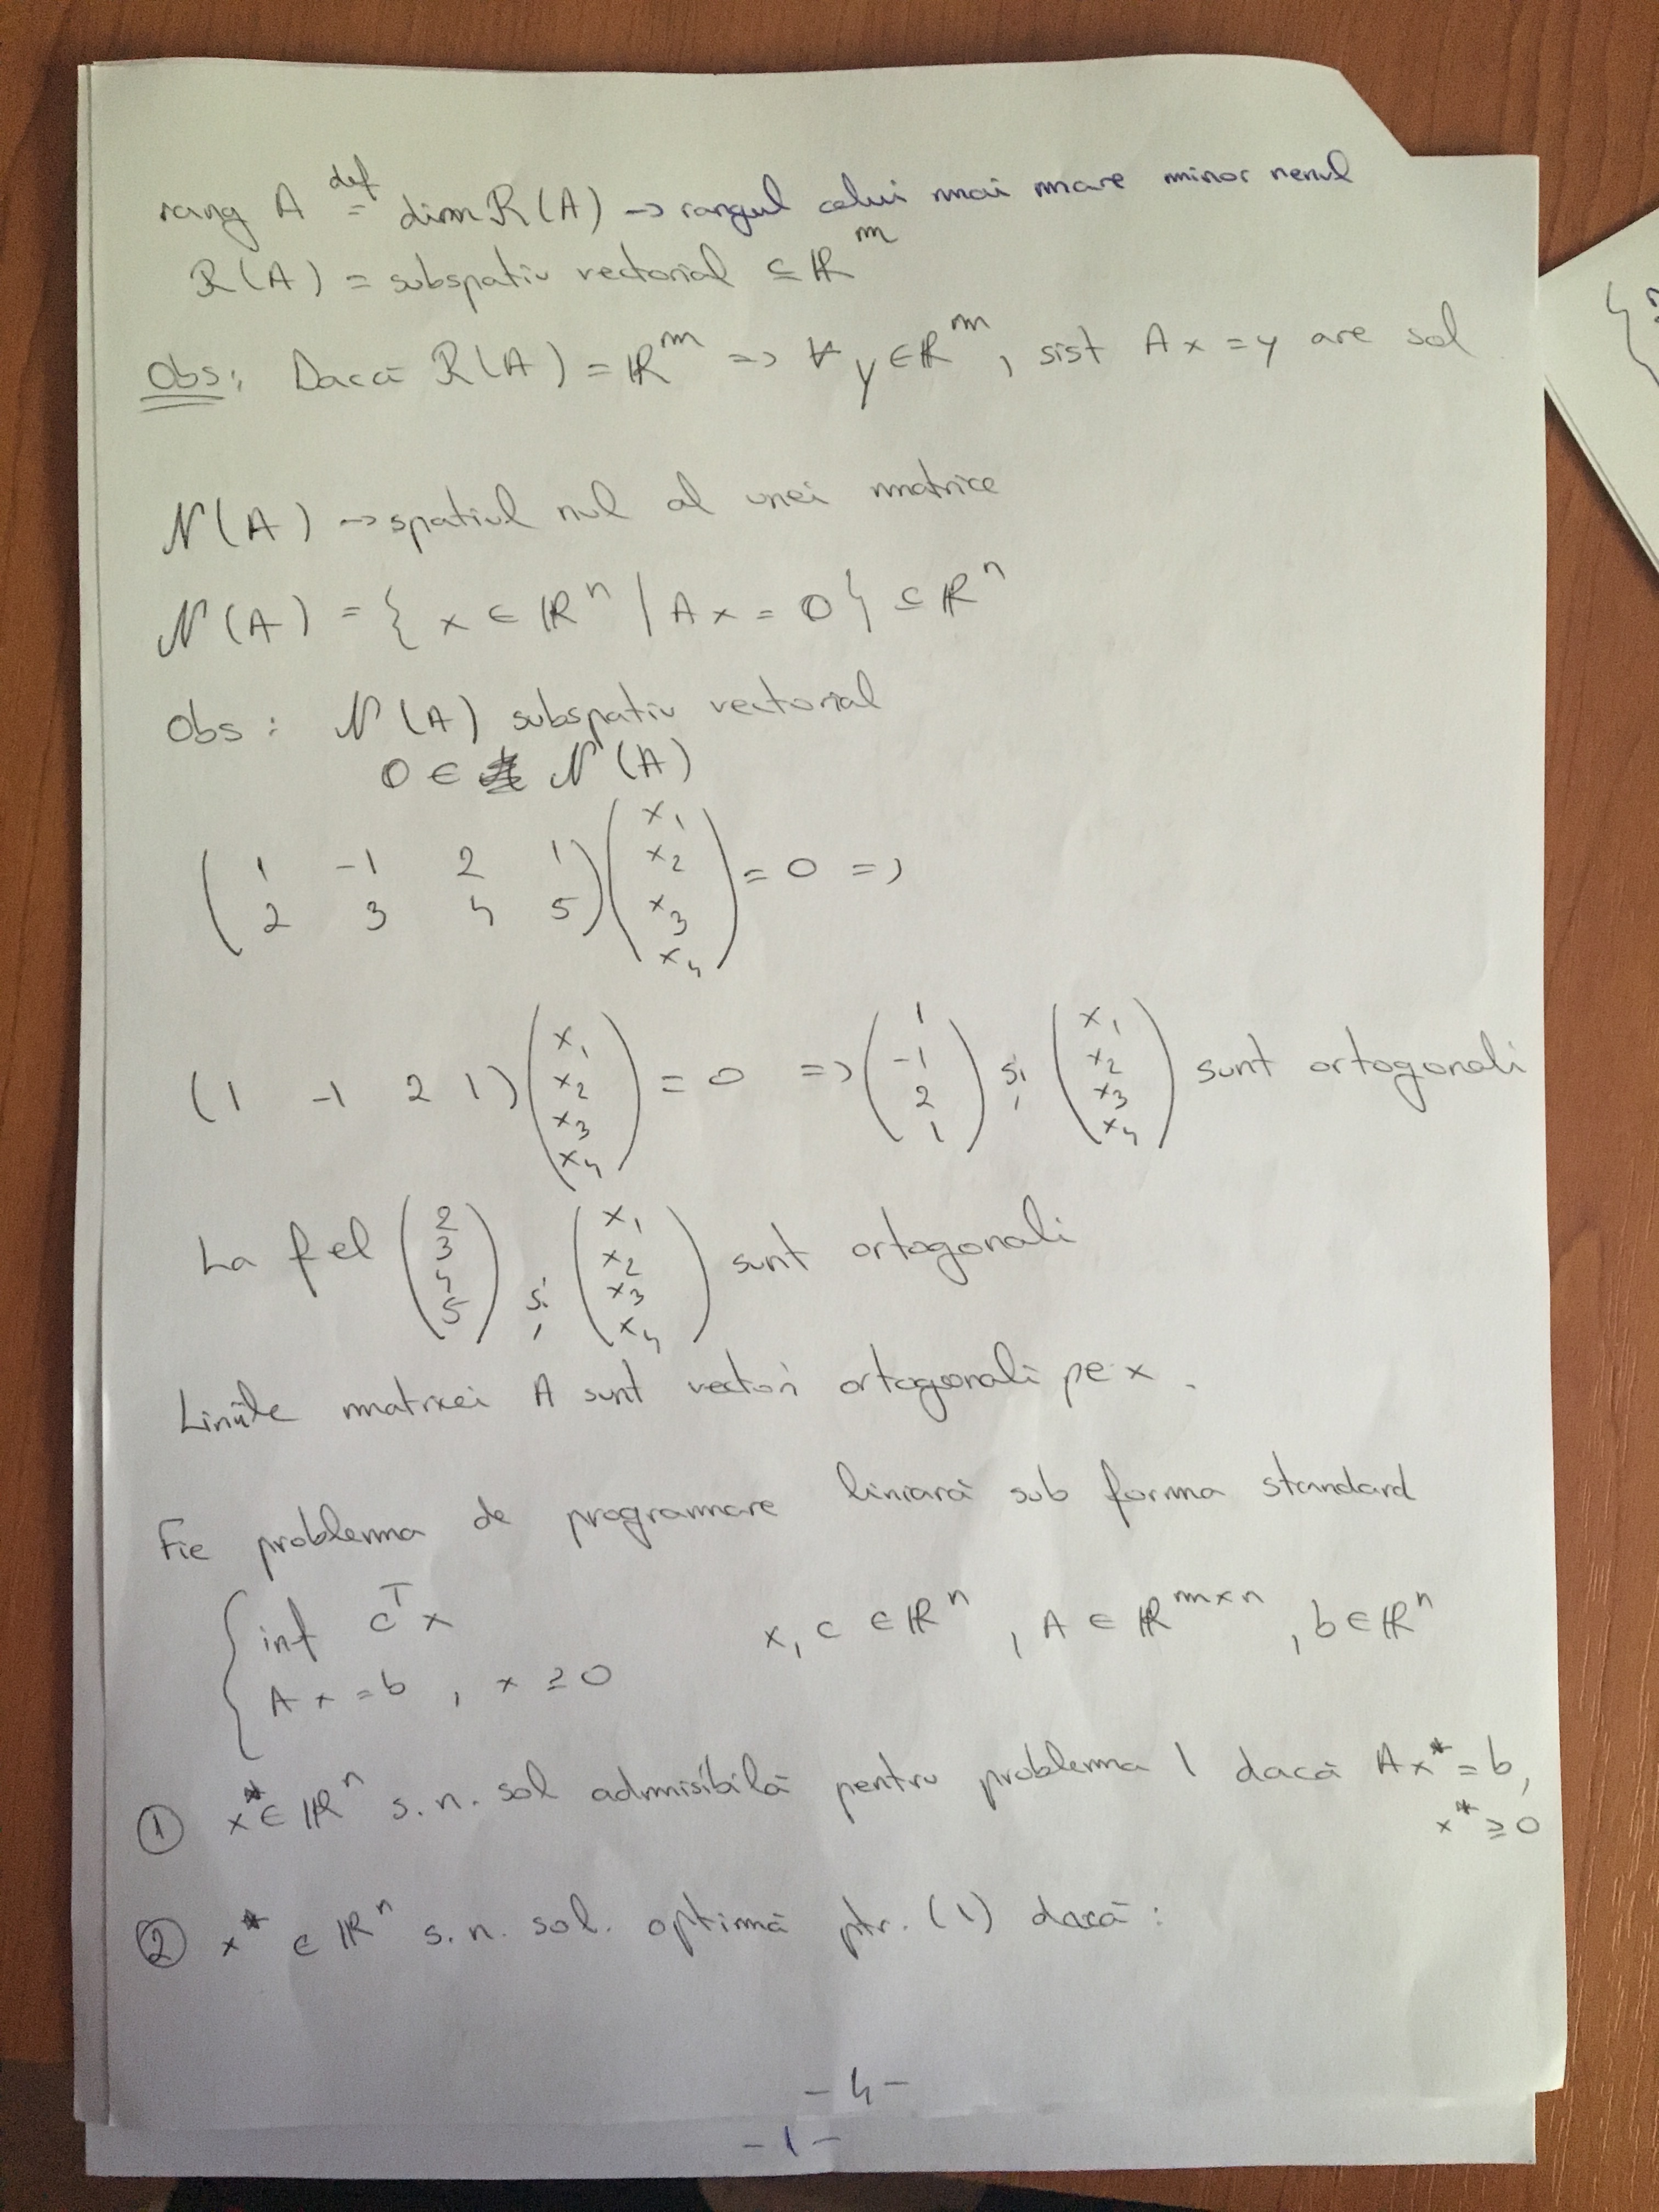 rang A def= dim R(A) -> rangul celui mai mare minor nenul
R(A) = subspatiu vectorial ⊆ ℝ^m
Obs: Dacă R(A) = ℝ^m => ∀ y ∈ ℝ^m, sist Ax = y are sol
N(A) -> spatiul nul al unei matrice
N(A) = { x ∈ ℝ^n | Ax = 0 } ⊆ ℝ^n
Obs: N(A) subspatiu vectorial
0 ∈ N(A)
(1 -1 2 1; 2 3 4 5) (x1; x2; x3; x4) = 0 =>
(1 -1 2 1) (x1; x2; x3; x4) = 0 => (1; -1; 2; 1) și (x1; x2; x3; x4) sunt ortogonali
La fel (2; 3; 4; 5) și (x1; x2; x3; x4) sunt ortogonali
Liniile matricei A sunt vectori ortogonali pe x.
Fie problema de programare liniară sub forma standard
{ inf c^T x    x, c ∈ ℝ^n, A ∈ ℝ^{m×n}, b ∈ ℝ^n
Ax = b, x ≥ 0
① x* ∈ ℝ^n s.n. sol admisibilă pentru problema 1 dacă Ax* = b,
x* ≥ 0
② x* ∈ ℝ^n s.n. sol. optimă ptr. (1) dacă:
- 4 -
- 1 -